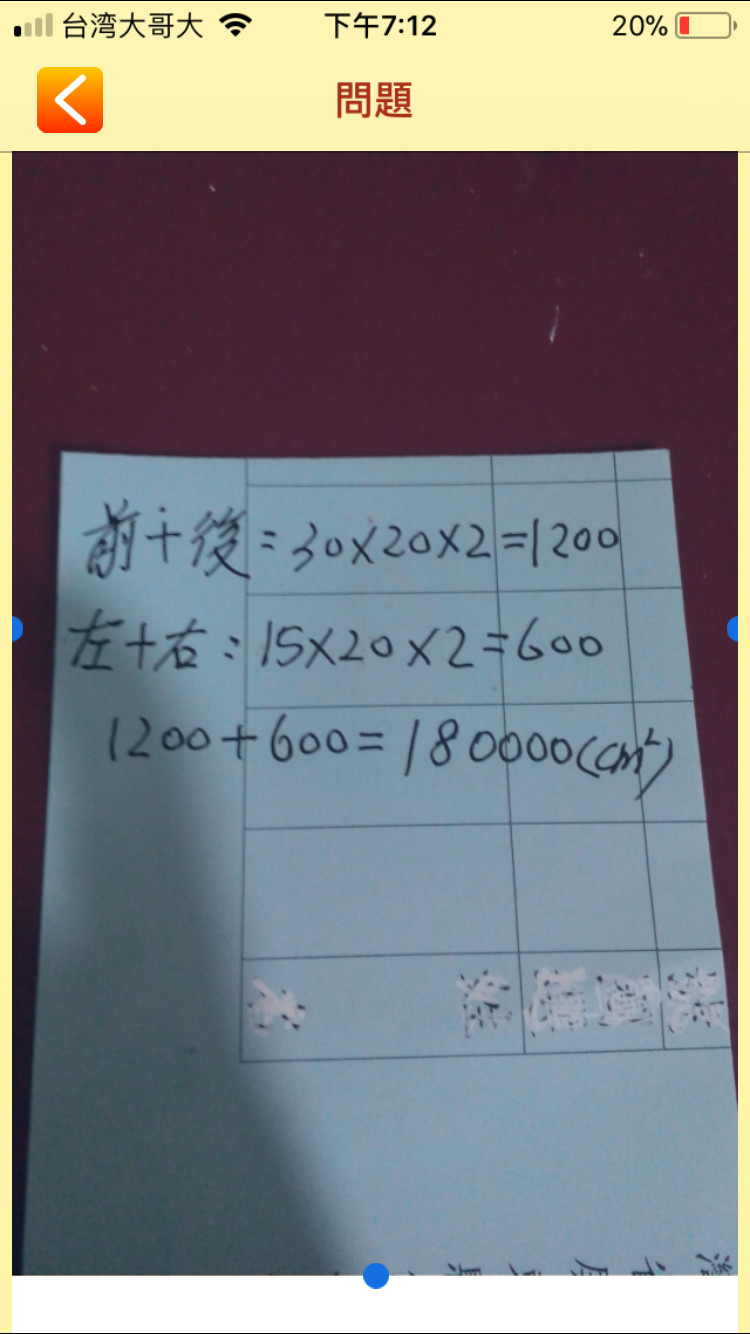 台湾大哥大 下午7:12 20%
問題
前+後:30×20×2=1200
左+右:15×20×2=600
1200+600=180000(cm²)
名 姓